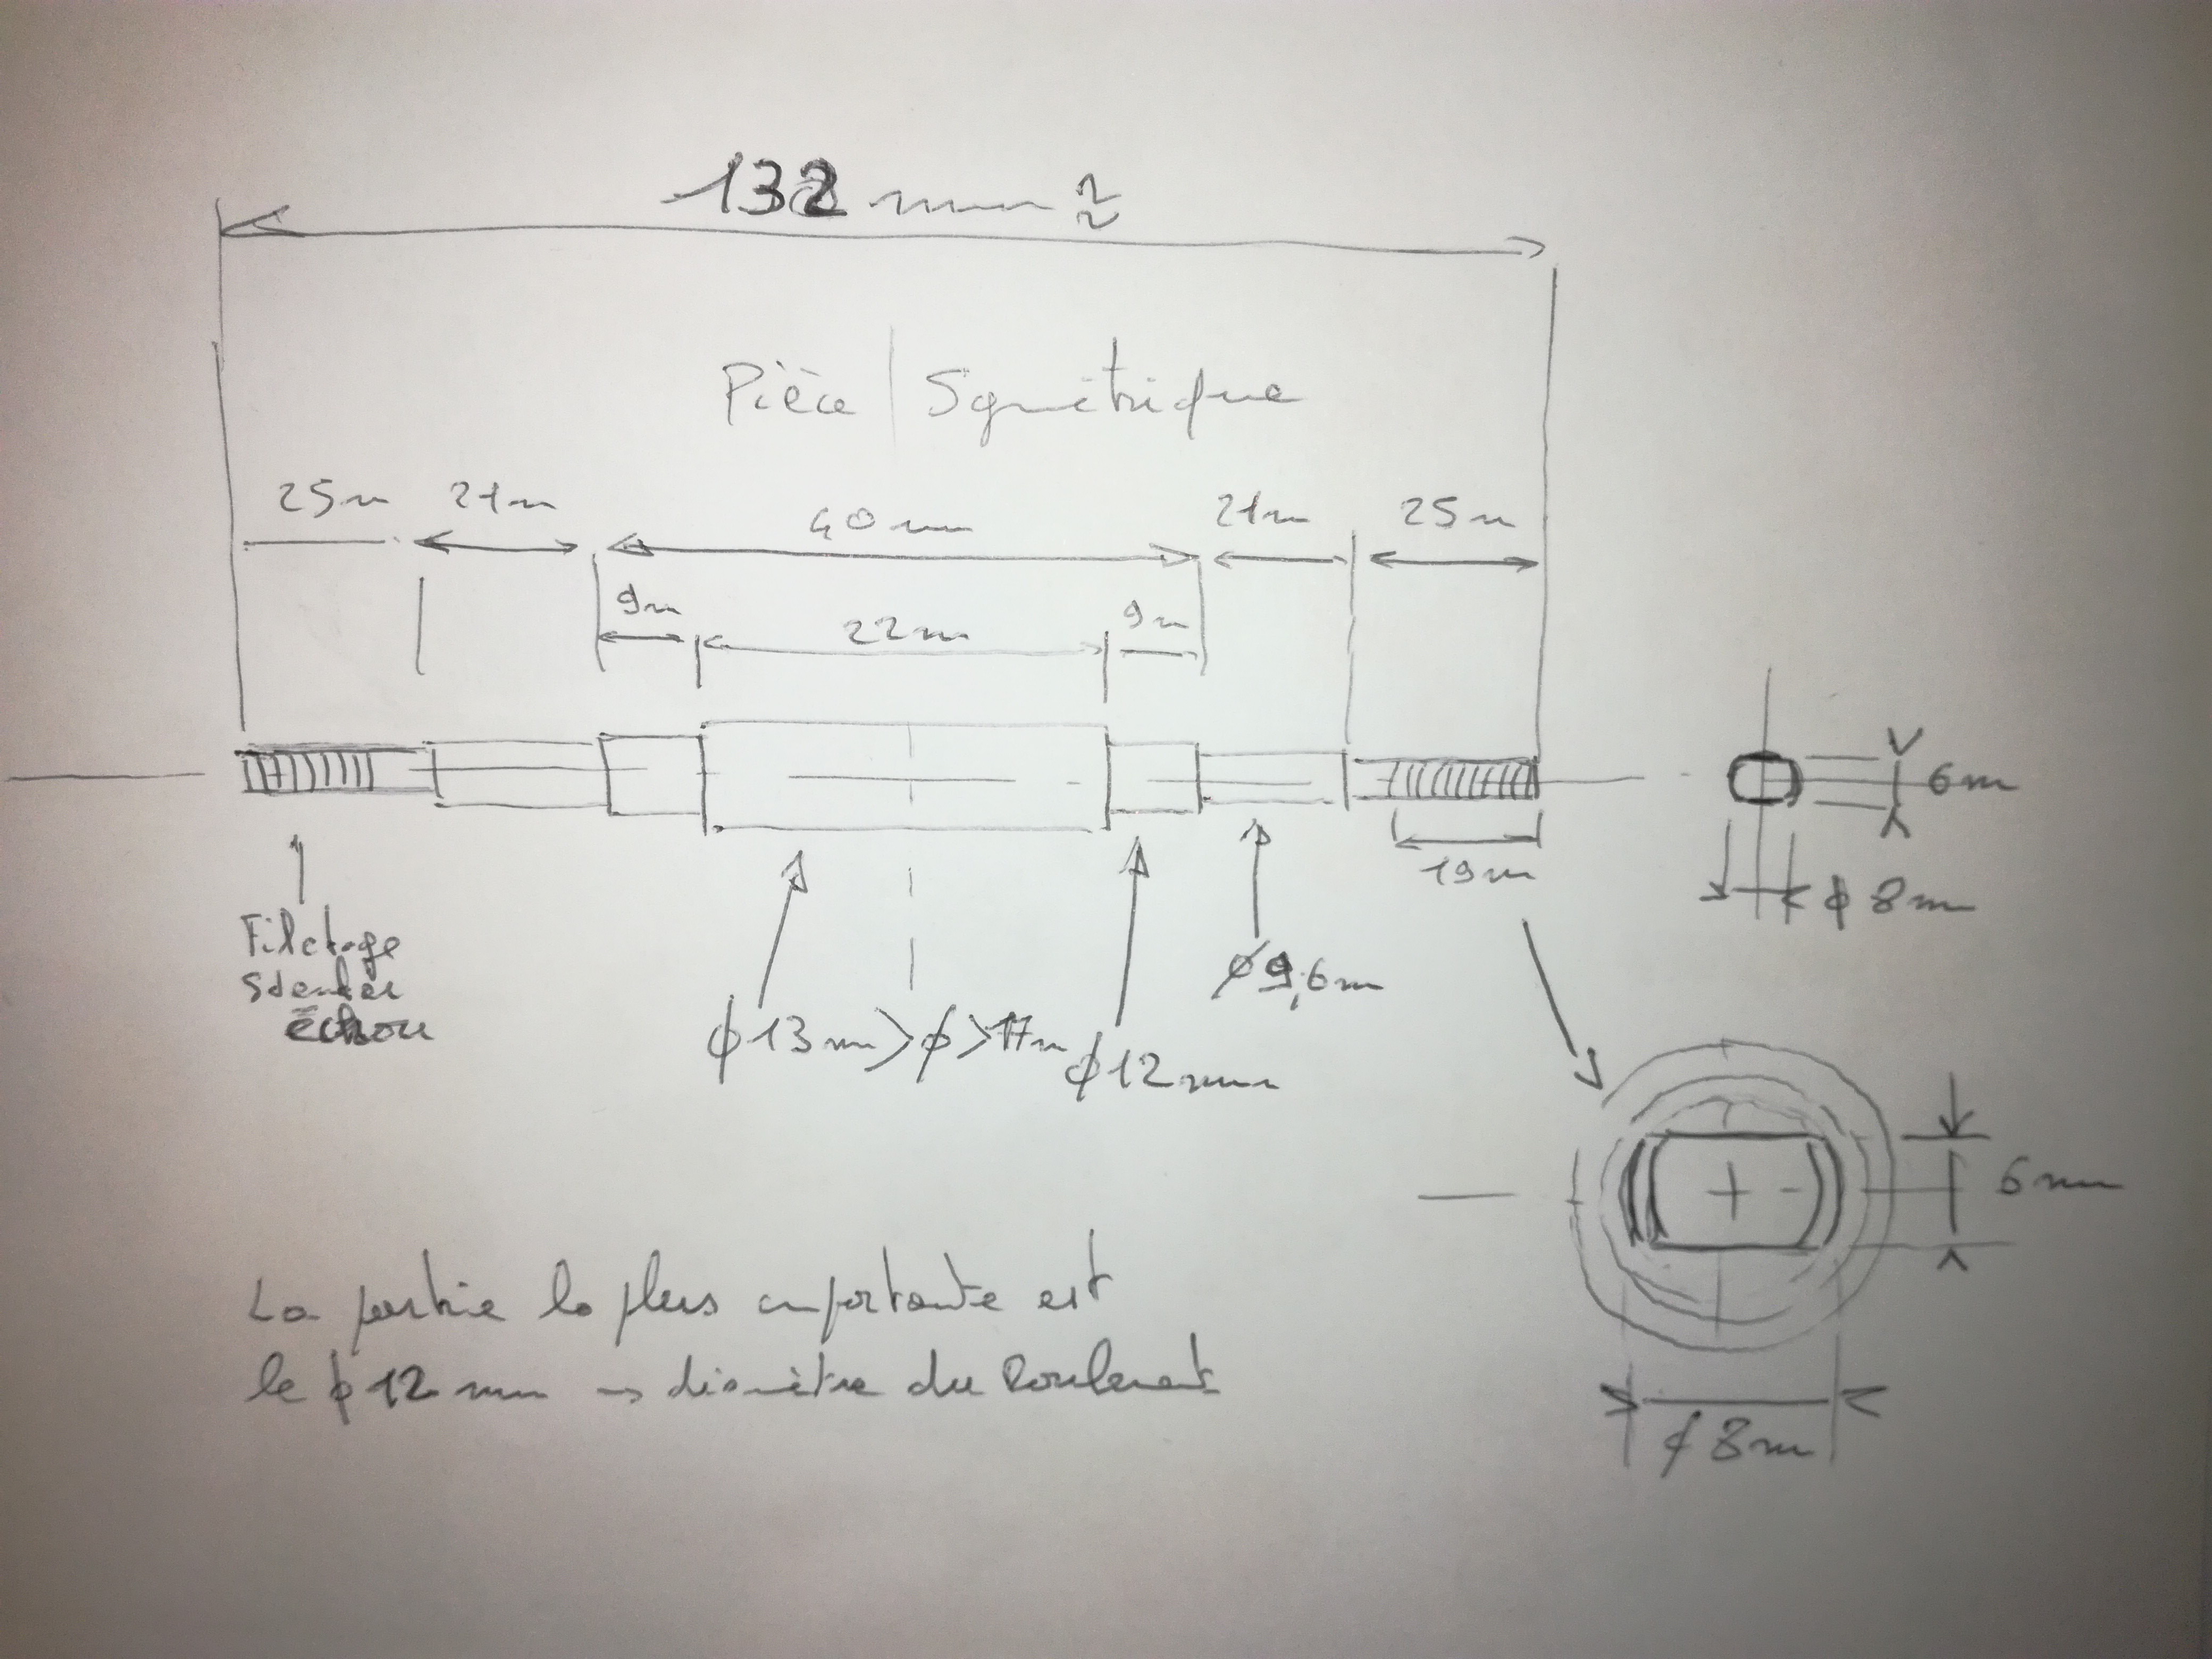 132 mm ≈
Pièce Symétrique
25m 21m 40mm 21m 25m
9m 22m 9m
6m
19m
ϕ 8m
Filetage
standar
écrou
ϕ 9,6m
ϕ 13mm > ϕ > 17m
ϕ 12mm
6mm
La partie la plus importante est
le ϕ 12 mm → diamètre du Roulement
ϕ 8m